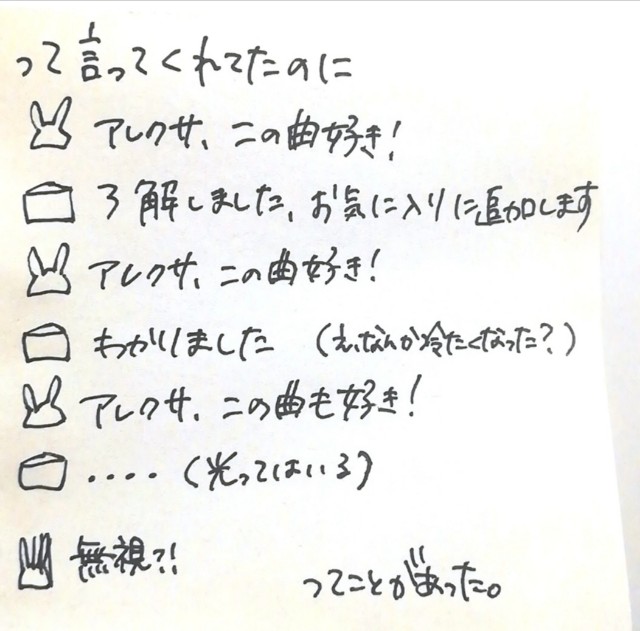 って言ってくれてたのに
アレクサ、この曲好き!
了解しました、お気に入りに追加します
アレクサ、この曲好き!
わかりました (え、なんか冷たくなった?)
アレクサ、この曲も好き!
.... (光ってはいる)
無視?!
ってことがあった。